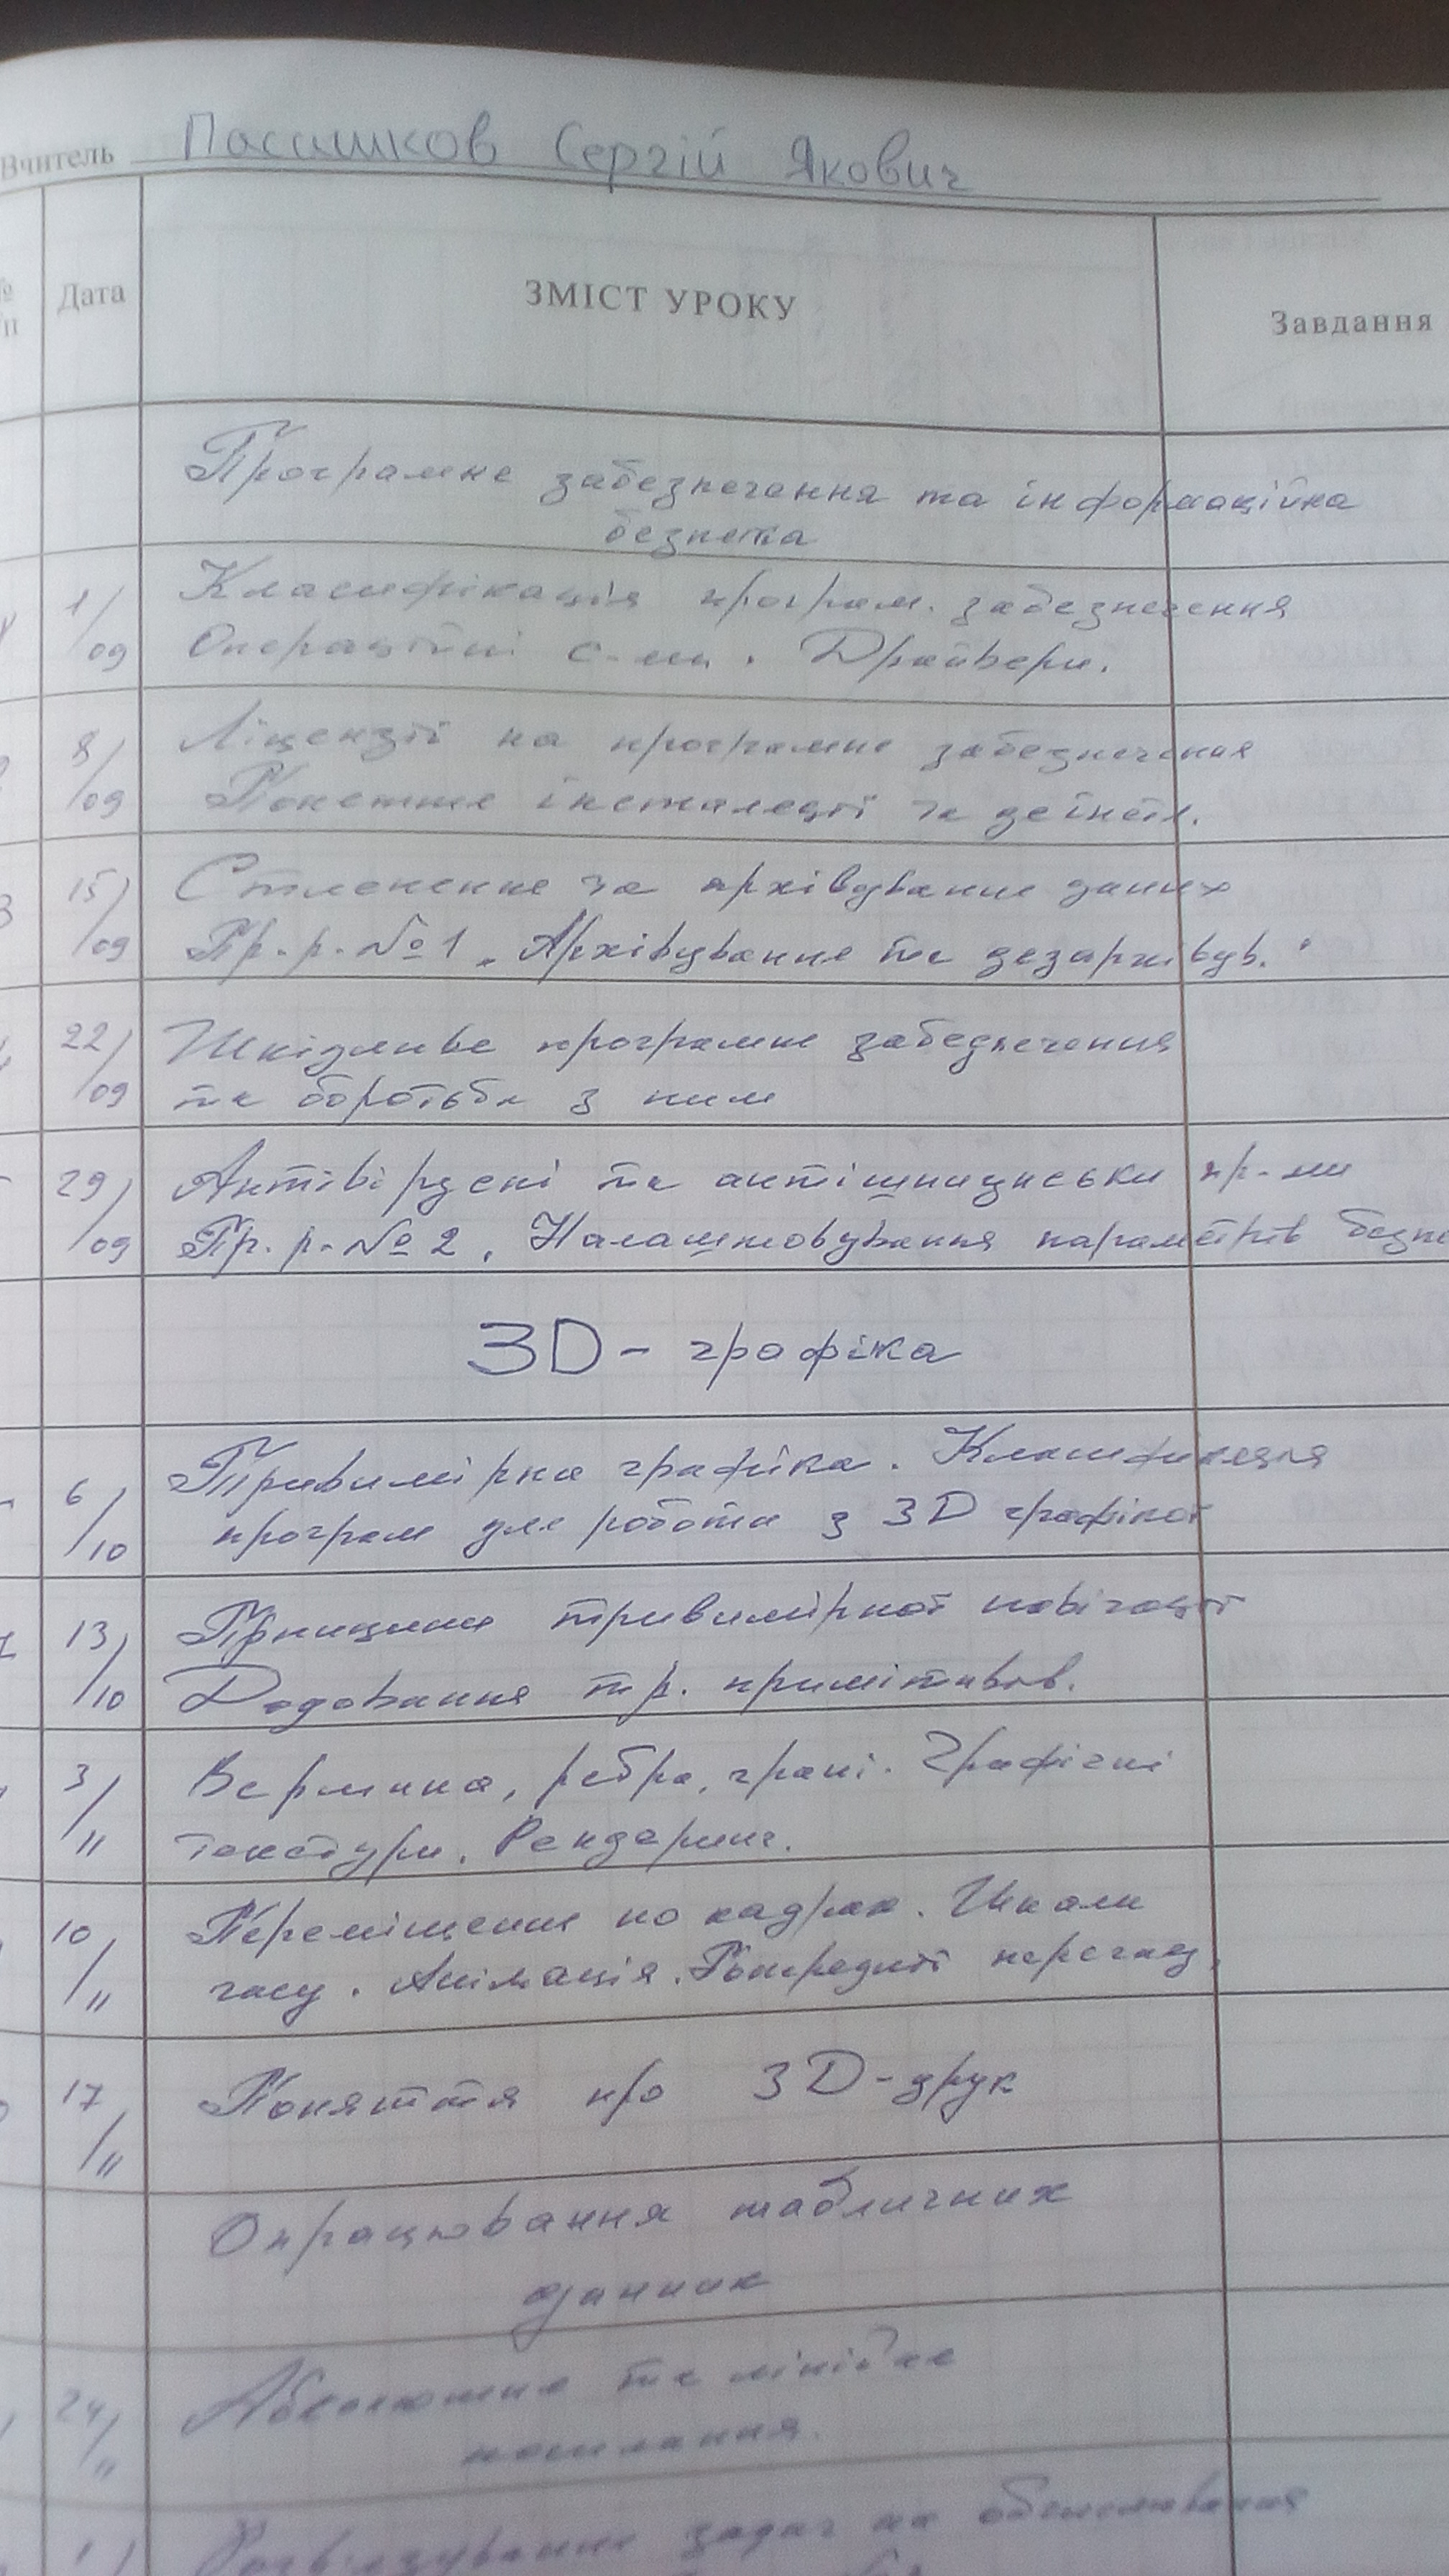 Вчитель Пасишков Сергій Якович
№ Дата ЗМІСТ УРОКУ Завдання
п
Програмне забезпечення та інформаційна
безпека
1/09 Класифікація програм. забезпечення
Операційні с-ми. Драйвери.
8/09 Ліцензії на програмне забезпечення
Поняття інсталяції та деінстл.
3 15/09 Стиснення та архівування даних
Пр.р. №1 „Архівування та дезархівув."
22/09 Шкідливе програмне забезпечення
та боротьба з ним
29/09 Антивірусні та антишпигунські пр-ми
Пр. р. №2. Налаштовування параметрів безпе
3D-графіка
6/10 Тривимірна графіка. Класифікація
програм для роботи з 3D графікої
13/10 Принципи тривимірної навігації
Додовання тр. примітивів.
3/11 Вершина, ребра, грані. Графічні
текстури. Рендеринг.
10/11 Переміщення по кадрах. Шкали
часу. Анімація. Попередній перегляд.
17/11 Поняття про 3D-друк
Опрацювання табличних
данних
24/11 Абсолютне та мінійне
посилання.
1/ Розвязування задач на обчислювання